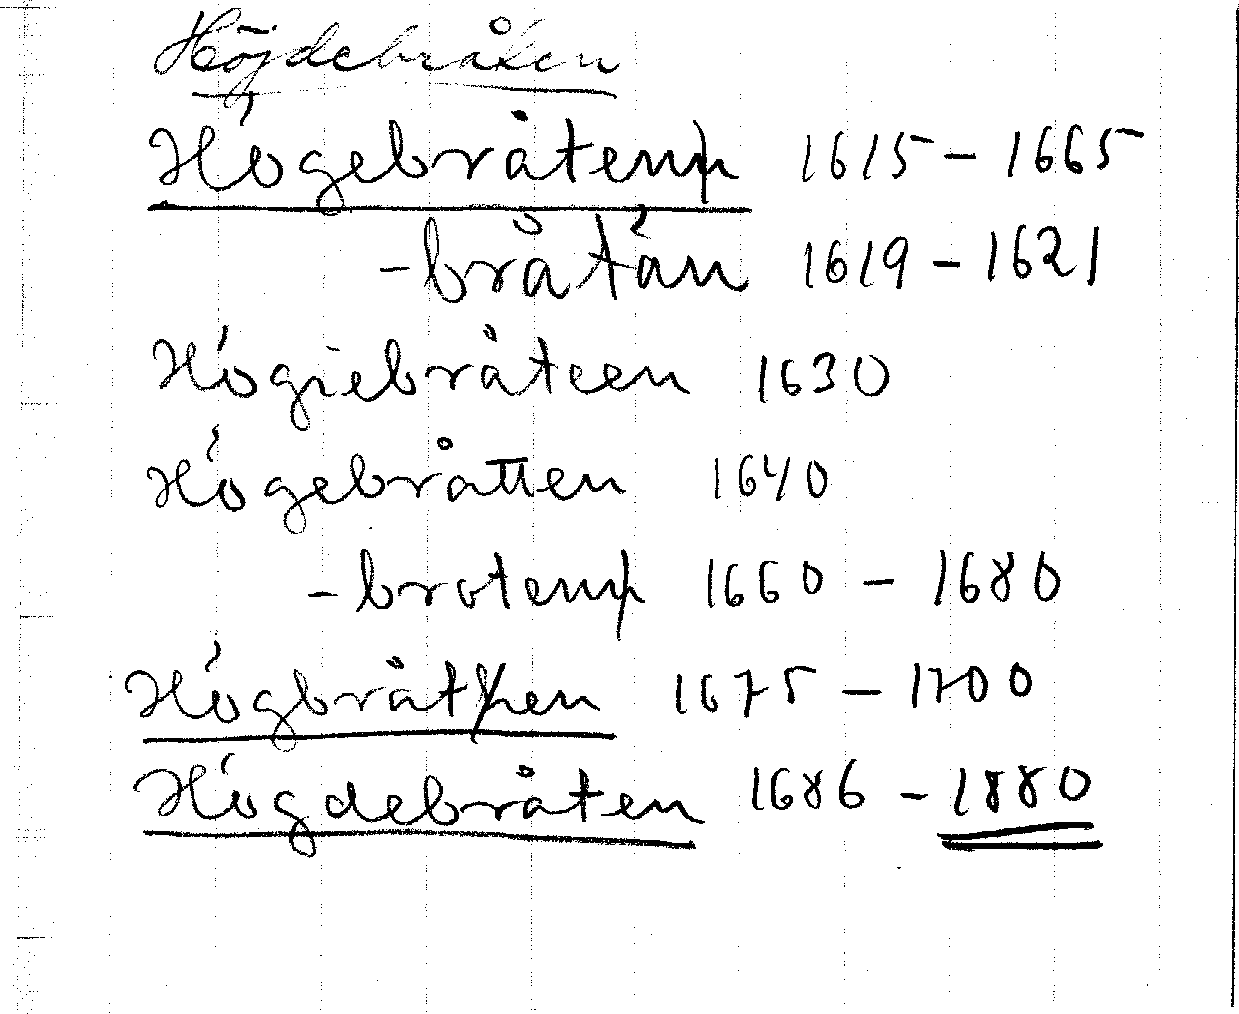 Höjdebråten
Högebråtenn 1615 - 1665
-bråtän 1619 - 1621
Högiebråteen 1630
Högebråtten 1640
-brotenn 1660 - 1680
Högbråthen 1675 - 1700
Högdebråten 1686 - 1880